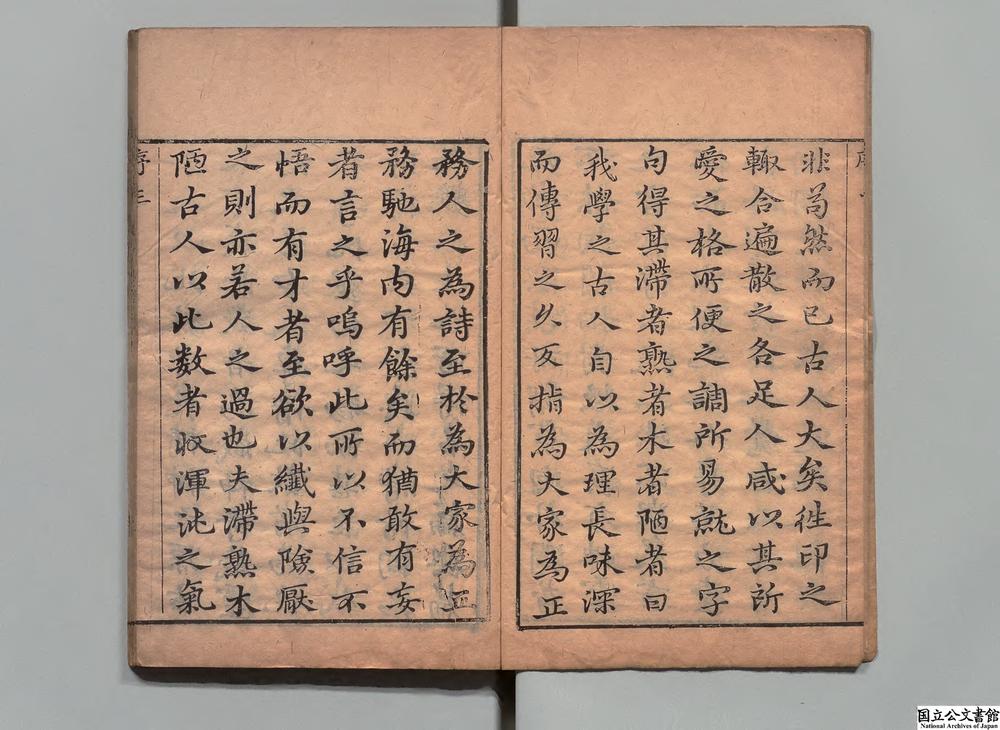 非苟然而已古人大矣徃印之
輙合遍散之各足人咸以其所
愛之格所便之調所易就之字
句得其滯者熟者木者陋者曰
我學之古人自以為理長味深
而傳習之久反指為大家為正
務人之為詩至於為大家為正
務馳海内有餘矣而猶敢有妄
者言之乎嗚呼此所以不信不
悟而有才者至欲以纖與險厭
之則亦若人之過也夫滯熟木
陋古人以此数者收渾沌之氣
序三
国立公文書館
National Archives of Japan